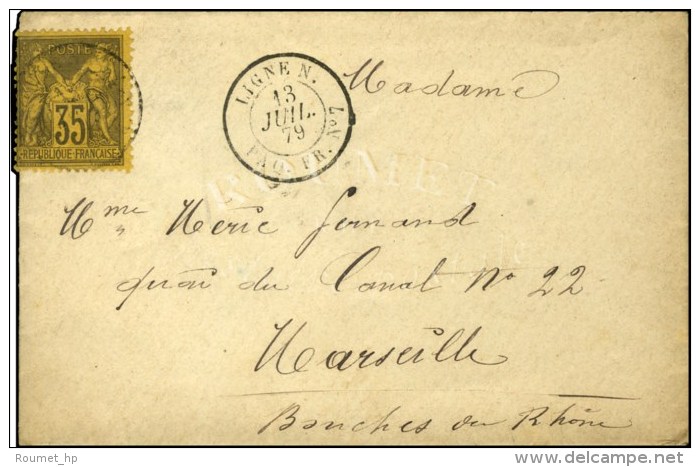 POSTES
35
REPUBLIQUE FRANÇAISE
LIGNE N.
13
JUIL.
79
PAQ. FR. Nº7
Madame
ROUMET
Mme Merie Fernand
quai du Canal No 22
Marseille
Bouches du Rhône
Roumet_hp
www.delcampe.net